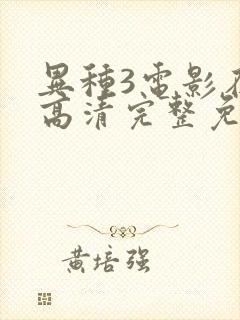 異種3電影
高清完整免
黄培强